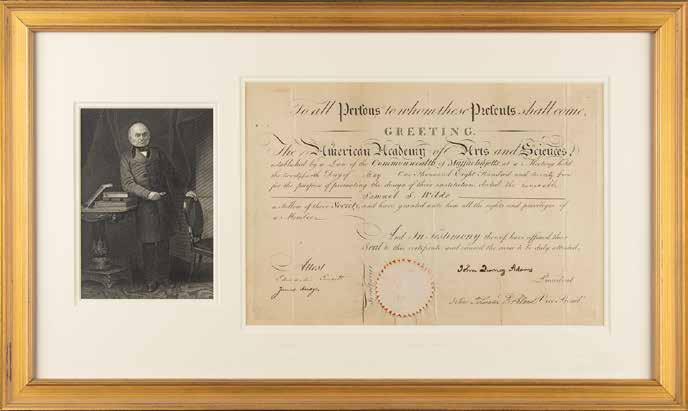 To all Persons to whom these Presents shall come,
GREETING.
The American Academy of Arts and Sciences,
established by a Law of the Commonwealth of Massachusetts, at a Meeting held
the Day of May One thousand Eight Hundred and twenty
for the purpose of promoting the design of their institution elected the
Samuel S. Wilde
a Fellow of their Society, and have granted unto him all the rights and privileges of
a Member.
And In Testimony thereof have affixed their
Seal to this certificate and caused the same to be duly attested.
Attest
Edward Everett
John Quincy Adams
President
John Kirkland Vice Presid.